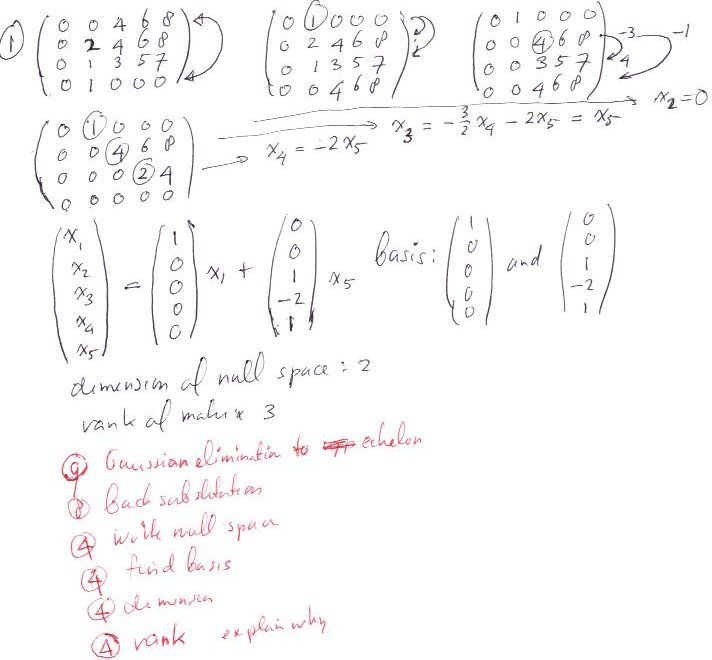 ①
0 0 4 6 8
0 2 4 6 8
0 1 3 5 7
0 1 0 0 0
0 1 0 0 0
0 2 4 6 8
0 1 3 5 7
0 0 4 6 8
0 1 0 0 0
0 0 4 6 8 -3 -1
0 0 3 5 7 4
0 0 4 6 8
0 1 0 0 0
0 0 4 6 8
0 0 0 2 4
0 0 0 0 0
x₄ = -2x₅
x₃ = -3/2 x₄ - 2x₅ = x₅
x₂ = 0
(x₁ x₂ x₃ x₄ x₅) = (1 0 0 0 0) x₁ + (0 0 1 -2 1) x₅ basis: (1 0 0 0 0) and (0 0 1 -2 1)
dimension of null space: 2
rank of matrix 3
⑨ Gaussian elimination to echelon
⑧ Back substitution
④ write null space
④ find basis
④ dimension
④ rank explain why